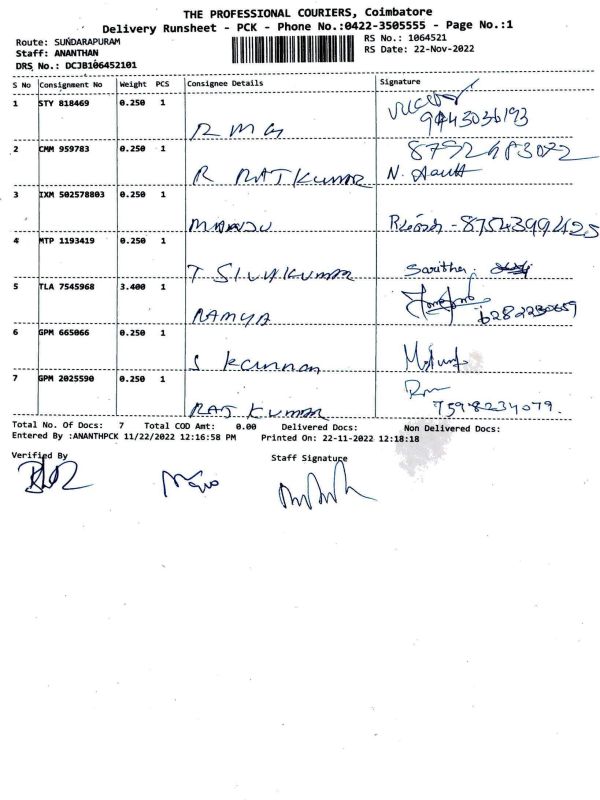 THE PROFESSIONAL COURIERS, Coimbatore
Delivery Runsheet - PCK - Phone No.:0422-3505555 - Page No.:1
Route: SUNDARAPURAM
RS No.: 1064521
Staff: ANANTHAN
RS Date: 22-Nov-2022
DRS No.: DCJB106452101
S No Consignment No Weight PCS Consignee Details Signature
1 STY 818469 0.250 1
R M G
9443036193
2 CMM 959783 0.250 1
R RAJKUMAR N.
3 IXM 502578803 0.250 1
4 MTP 1193419 0.250 1
T SIVAKUMAR Saritha
5 TLA 7545968 3.400 1
RAMYA 6282230659
6 GPM 665066 0.250 1
S Kannan
7 GPM 2025590 0.250 1
RAJ KUMAR 7598234079.
Total No. Of Docs: 7 Total COD Amt: 0.00 Delivered Docs: Non Delivered Docs:
Entered By :ANANTHPCK 11/22/2022 12:16:58 PM Printed On: 22-11-2022 12:18:18
Verified By Staff Signature